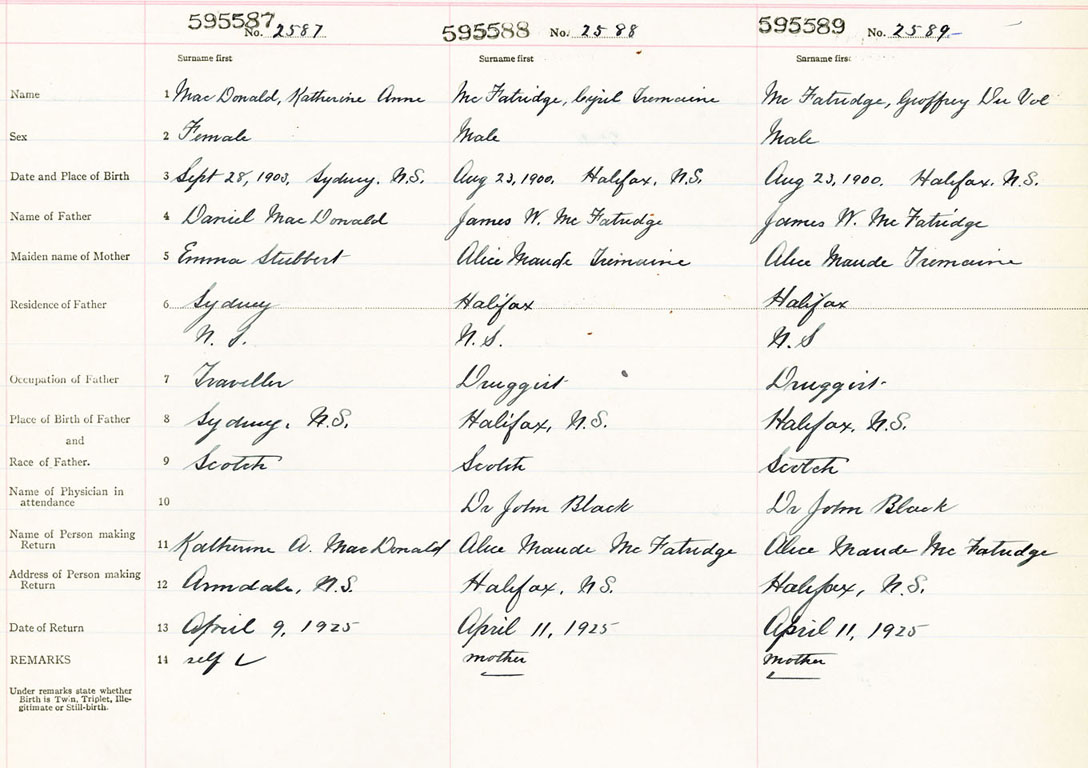 595587 No. 2587 595588 No. 2588 595589 No. 2589
Surname first Surname first Surname first
Name 1 MacDonald, Katherine Anne Mc Fatridge, Cyril Tremaine Mc Fatridge, Geoffrey Du Vol
Sex 2 Female Male Male
Date and Place of Birth 3 Sept 28, 1903, Sydney, N.S. Aug 23, 1900. Halifax, N.S. Aug 23, 1900. Halifax. N.S.
Name of Father 4 Daniel MacDonald James W. Mc Fatridge James W. Mc Fatridge
Maiden name of Mother 5 Emma Stubbert Alice Maude Tremaine Alice Maude Tremaine
Residence of Father 6 Sydney Halifax Halifax
N. S. N. S. N. S
Occupation of Father 7 Traveller Druggist Druggist
Place of Birth of Father 8 Sydney, N.S. Halifax, N.S. Halifax, N.S.
and
Race of Father. 9 Scotch Scotch Scotch
Name of Physician in
attendance 10 Dr John Black Dr John Black
Name of Person making
Return 11 Katherine A. MacDonald Alice Maude Mc Fatridge Alice Maude Mc Fatridge
Address of Person making
Return 12 Armdale, N.S. Halifax, N.S. Halifax, N.S.
Date of Return 13 April 9, 1925 April 11, 1925 April 11, 1925
REMARKS 14 self mother mother
Under remarks state whether
Birth is Twin, Triplet, Ille-
gitimate or Still-birth.